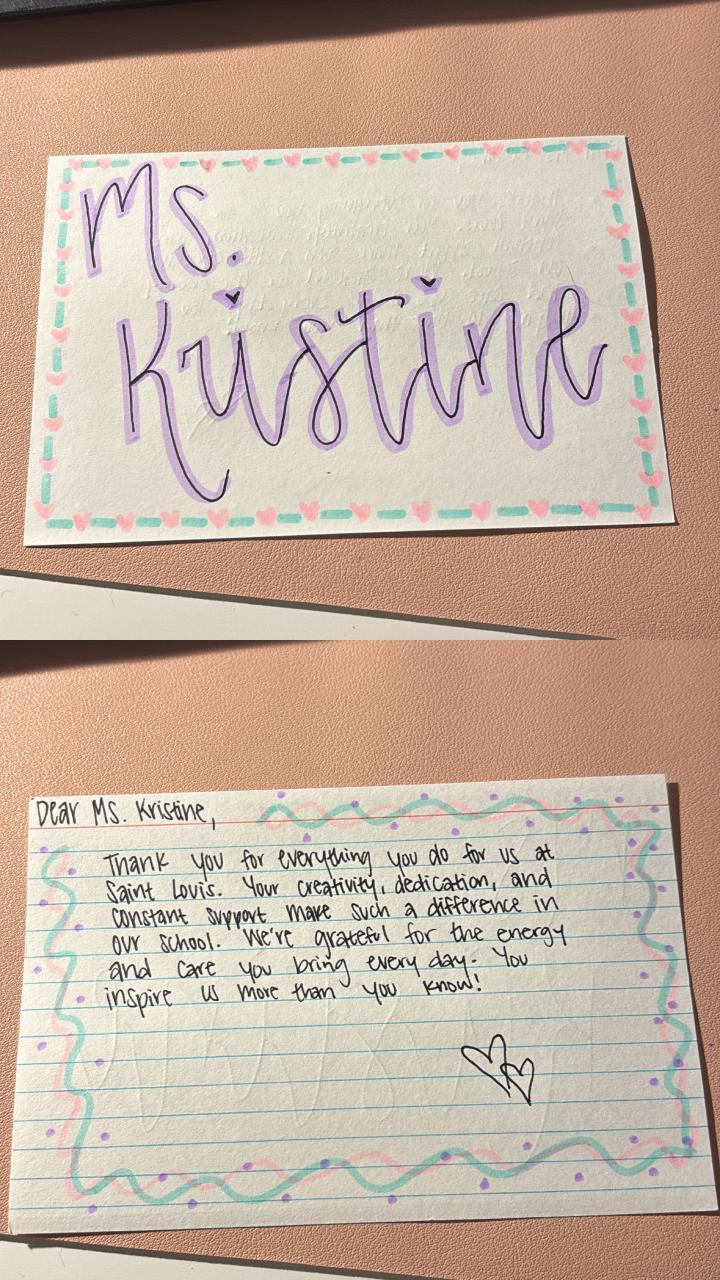 Ms.
Kristine
Dear Ms. Kristine,
Thank you for everything you do for us at
Saint Louis. Your creativity, dedication, and
constant support make such a difference in
our school. We're grateful for the energy
and care you bring every day. You
inspire us more than you know!